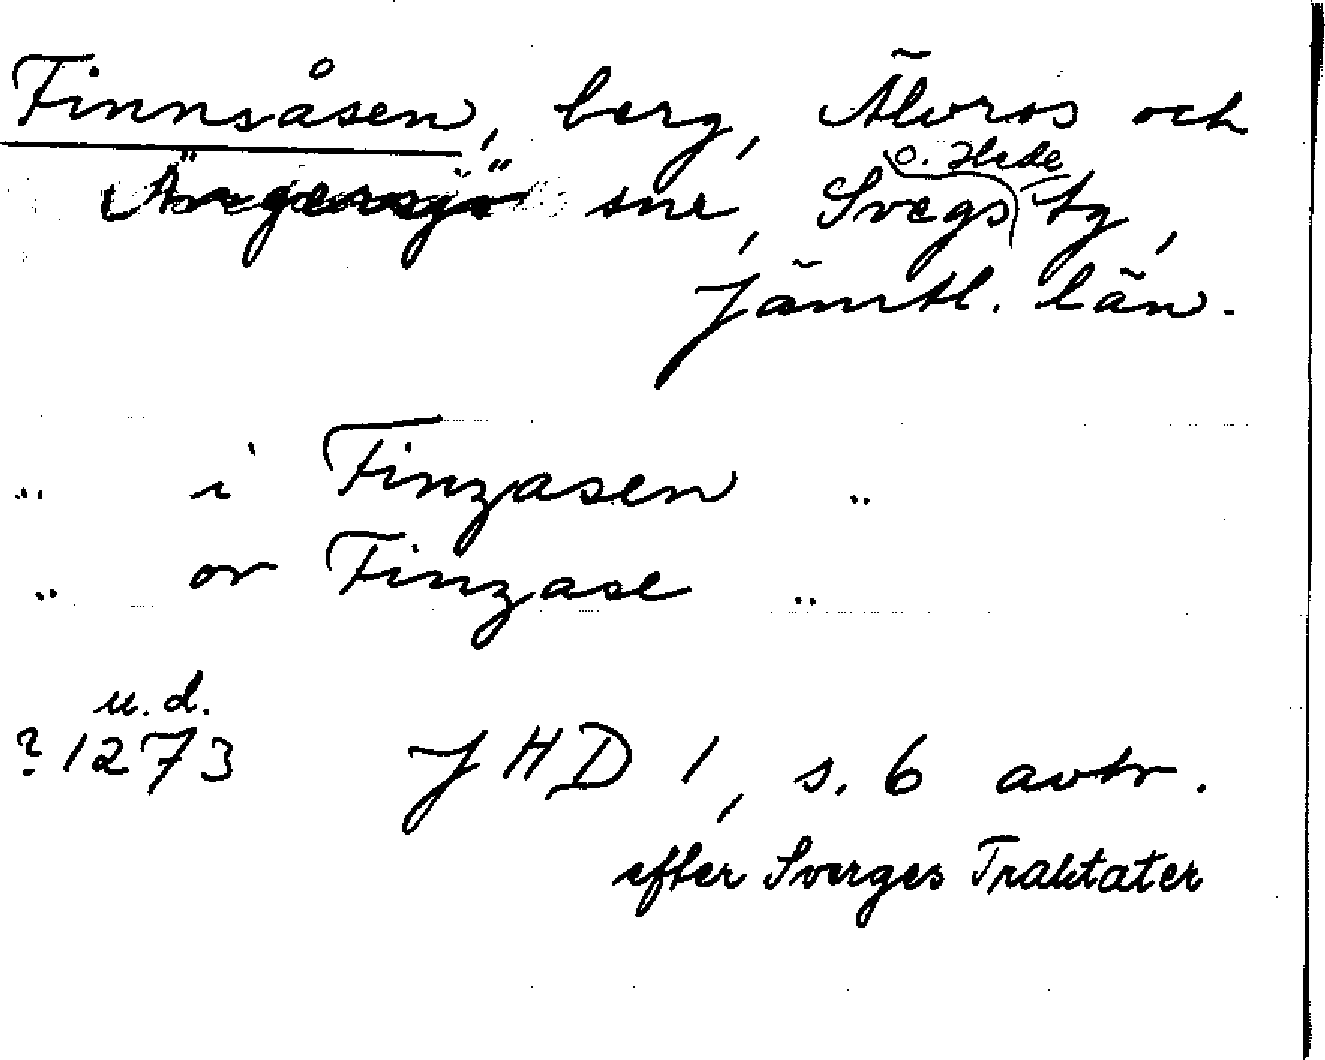 Finnsåsen, berg, Älvros och
Ängersjö snr, Svegs o. Hede tg,
Jämtl. län.
" i Finzasen "
" or Finzase "
u.d.
? 1273 JHD 1, s. 6 avtr.
efter Sverges Traktater